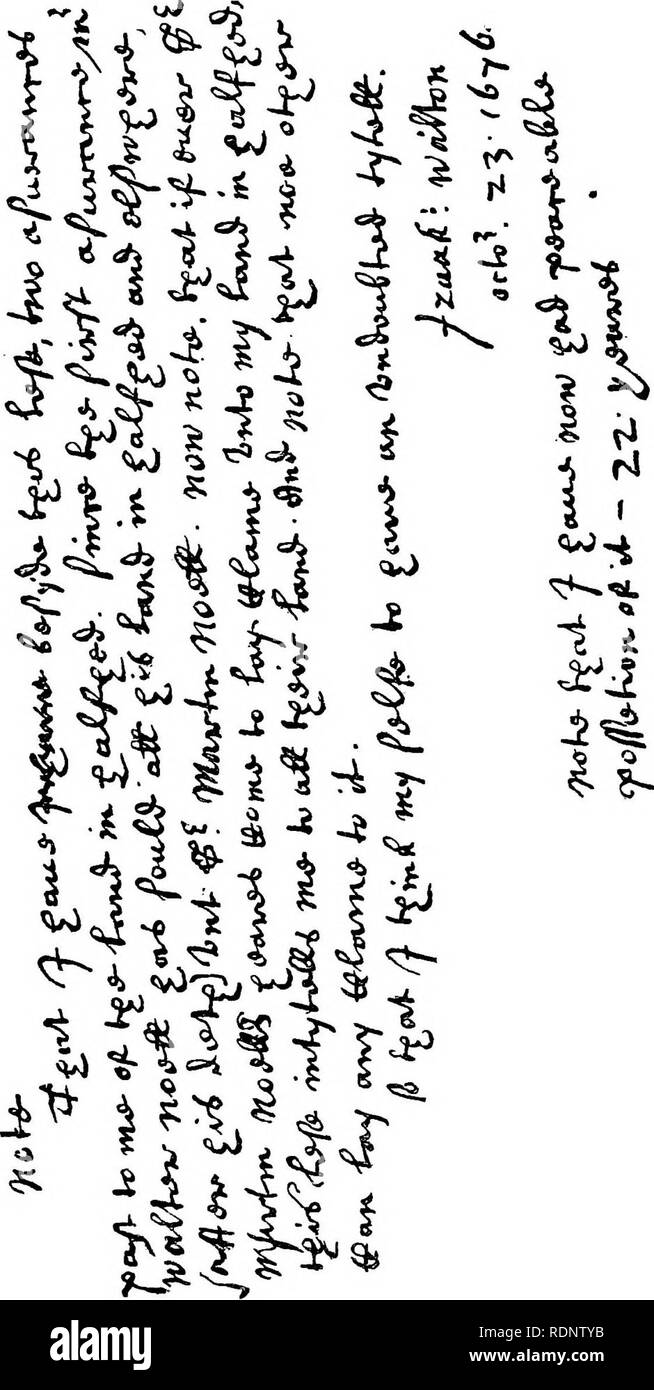 note
That I haue besyde this lese, two assurances
past to me of the land in halfhed. since the first assurance
walter noell has sould all his land in halfhed and elswhere,
his Martin Noell. now note. that if euer Sr
Martin Noells heares come to lay clame vnto my land in halfhed,
this lese intytells me to all their land. And note. that noe other
can lay any clame to it.
so that I think my selfe to haue an vndoubted tytell.
Izaak: Walton
octo: 23. 1676.
note that I haue now had peaceable
possession of it - 22. yeares
alamy
Image ID: RDNTYB
www.alamy.com